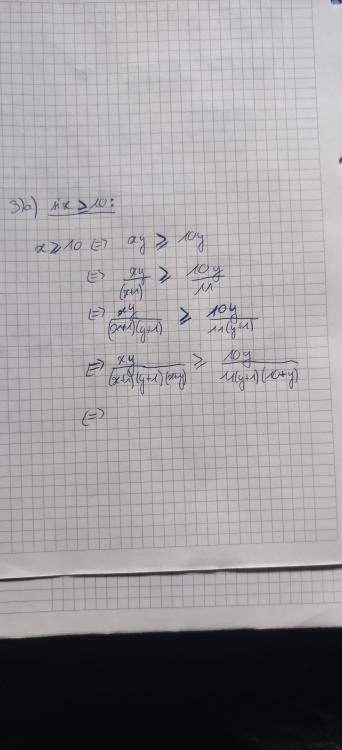 3)a) si x ⩾ 10 :
x ⩾ 10 (=) xy ⩾ 10y
(=) xy/(x+1) ⩾ 10y/11
(=) xy/((x+1)(y+1)) ⩾ 10y/(11(y+1))
(=) xy/((x+1)(y+1)(x+y)) ⩾ 10y/(11(y+1)(10+y))
(=)